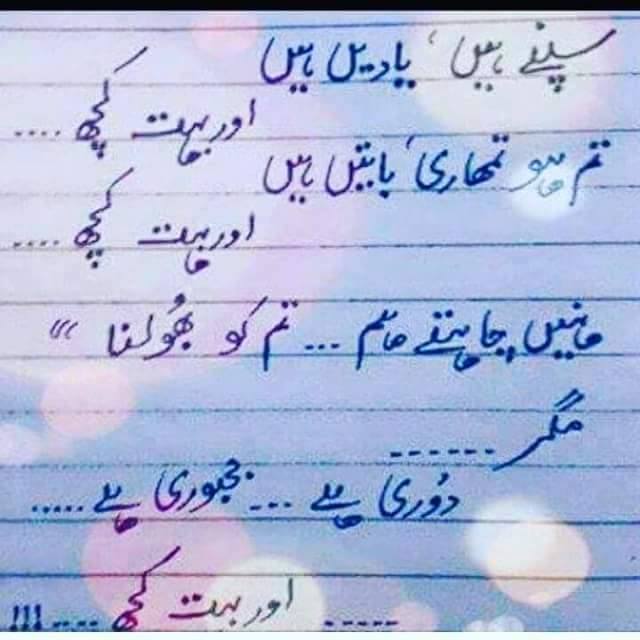 سپنے ہیں ‘ یادیں ہیں
اور بہت کچھ ....
تم ہو تمھاری ‘ باتیں ہیں
اور بہت کچھ ....
نہیں چاہتے ہم ... تم کو بُھولنا "
مگر .......
دُوری ہے ... مجبوری ہے .....
...... اور بہت کچھ ....!!!